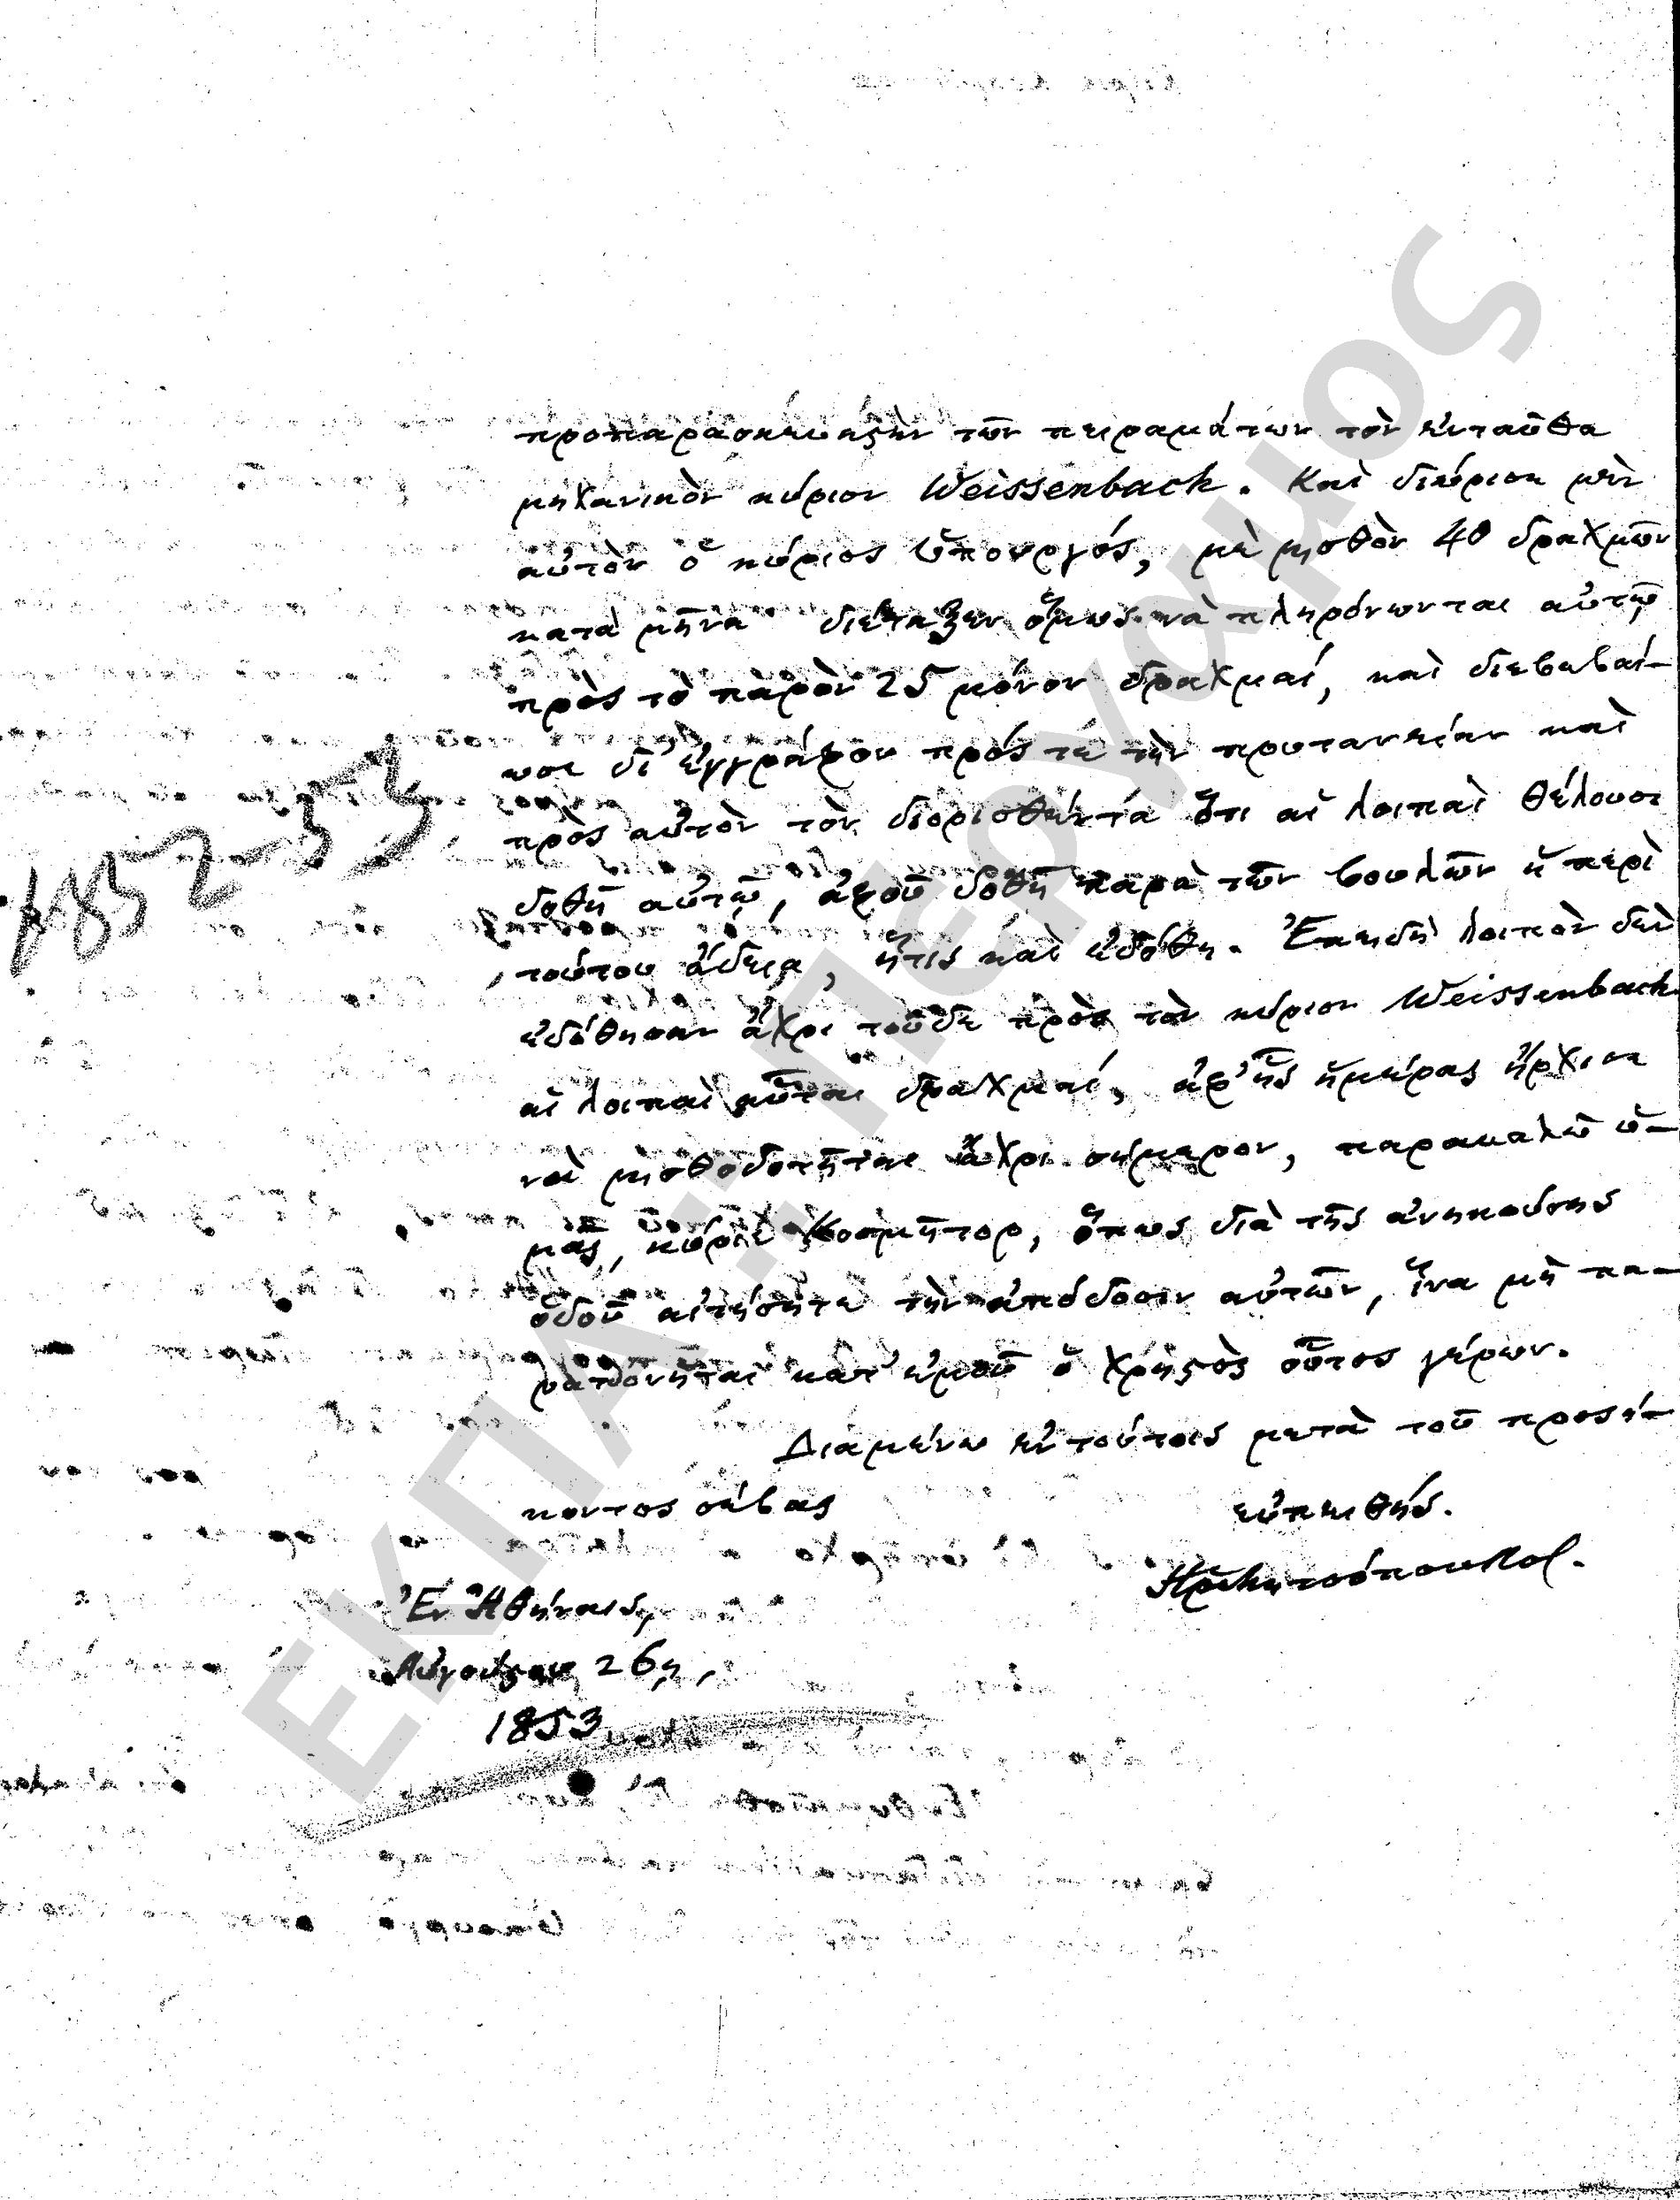 προπαρασκευαστὴν τῶν πειραμάτων τὸν ἐνταῦθα
μηχανικὸν κύριον Weissenbach. Καὶ διώρισε μὲν
αὐτὸν ὁ κύριος Ὑπουργός, μὲ μισθὸν 40 δραχμῶν
κατὰ μῆνα διέταξεν ὅμως νὰ πληρόνωνται αὐτῷ
πρὸς τὸ παρὸν 25 μόνον δραχμαί, καὶ διεβεβαί-
ωσε δι' ἐγγράφου πρός τε τὴν πρυτανείαν καὶ
πρὸς αὐτὸν τὸν διορισθέντα ὅτι αἱ λοιπαὶ θέλουσι
δοθῆ αὐτῷ, ἀφοῦ δοθῆ παρὰ τῶν βουλῶν ἡ περὶ
τούτου ἄδεια, ἥτις καὶ ἐδόθη. Ἐπειδὴ λοιπὸν δὲν
ἐδόθησαν ἄχρι τοῦδε πρὸς τὸν κύριον Weissenbach
αἱ λοιπαὶ αὗται δραχμαί, ἀφ' ἧς ἡμέρας ἤρχισε
νὰ μισθοδοτῆται ἄχρι σήμερον, παρακαλῶ ὑ-
μᾶς, κύριε Κοσμῆτορ, ὅπως διὰ τῆς ἀνηκούσης
ὁδοῦ αἰτήσητε τὴν ἀπόδοσιν αὐτῶν, ἵνα μὴ πα-
ραπονῆται κατ' ἐμοῦ ὁ χρηστὸς οὗτος γέρων.
Διαμένω ἐν τούτοις μετὰ τοῦ προσή-
κοντος σέβας
εὐπειθής.
Ἐν Ἀθήναις,
Αὐγούστου 26η,
1853
1852-53
ΕΚΠΑ - Ι. ΠΕΡΓΑΜΟΣ